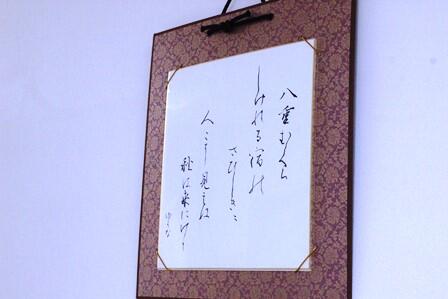 八重むくら
しけれる宿の
さひしきに
人こそ見えね
秋は来にけり